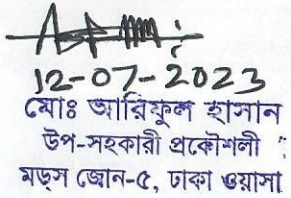 12-07-2023
মোঃ আরিফুল হাসান
উপ-সহকারী প্রকৌশলী
মড্স জোন-৫, ঢাকা ওয়াসা